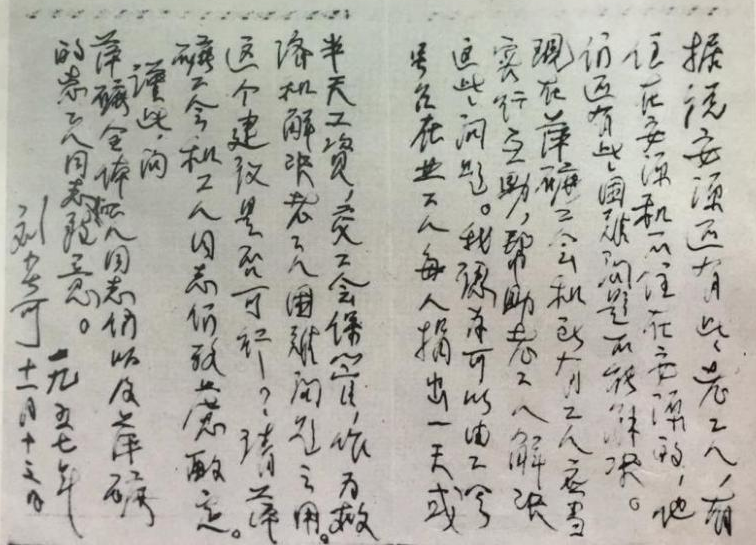 据说安源还有些老工人,有
住在安源和不住在安源的,他
们还有些困难问题不能解决。
现在萍礦工会和所有工人应当
实行互助,帮助老工人解决
这些问题。我认为可以由工会
号召在业工人每人捐出一天或
半天工資,交工会保管,作为救
济和解决老工人困难问题之用。
这个建议是否可行?请萍
礦工会和工人同志们考慮酌定。
谨此,问
萍礦全体工人同志们以及萍礦
的老工人同志致意。
一九五七年
刘少奇 十一月十日